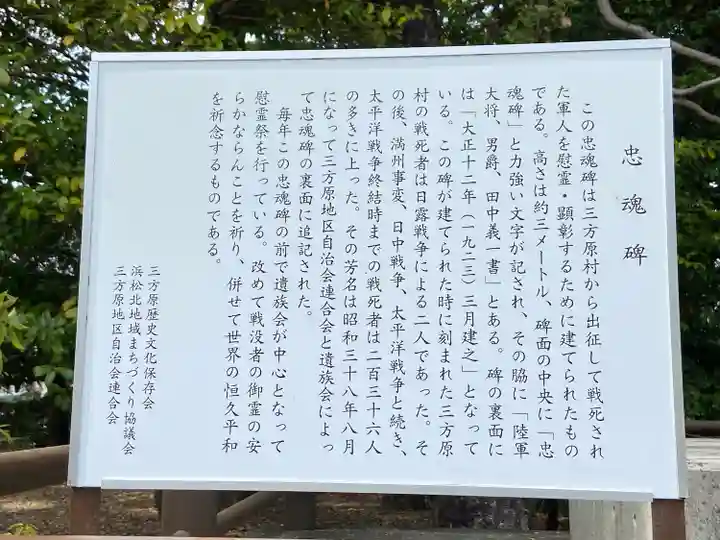 忠魂碑
この忠魂碑は三方原村から出征して戦死され
た軍人を慰霊・顕彰するために建てられたもの
である。高さは約三メートル、碑面の中央に「忠
魂碑」と力強い文字が記され、その脇に「陸軍
大将、男爵、田中義一書」とある。碑の裏面に
は「大正十二年(一九二三)三月建之」となって
いる。この碑が建てられた時に刻まれた三方原
村の戦死者は日露戦争による二人であった。そ
の後、満州事変、日中戦争、太平洋戦争と続き、
太平洋戦争終結時までの戦死者は二百三十六人
の多きに上った。その芳名は昭和三十八年八月
になって三方原地区自治会連合会と遺族会によっ
て忠魂碑の裏面に追記された。
毎年この忠魂碑の前で遺族会が中心となって
慰霊祭を行っている。改めて戦没者の御霊の安
らかならんことを祈り、併せて世界の恒久平和
を祈念するものである。
三方原歴史文化保存会
浜松北地域まちづくり協議会
三方原地区自治会連合会